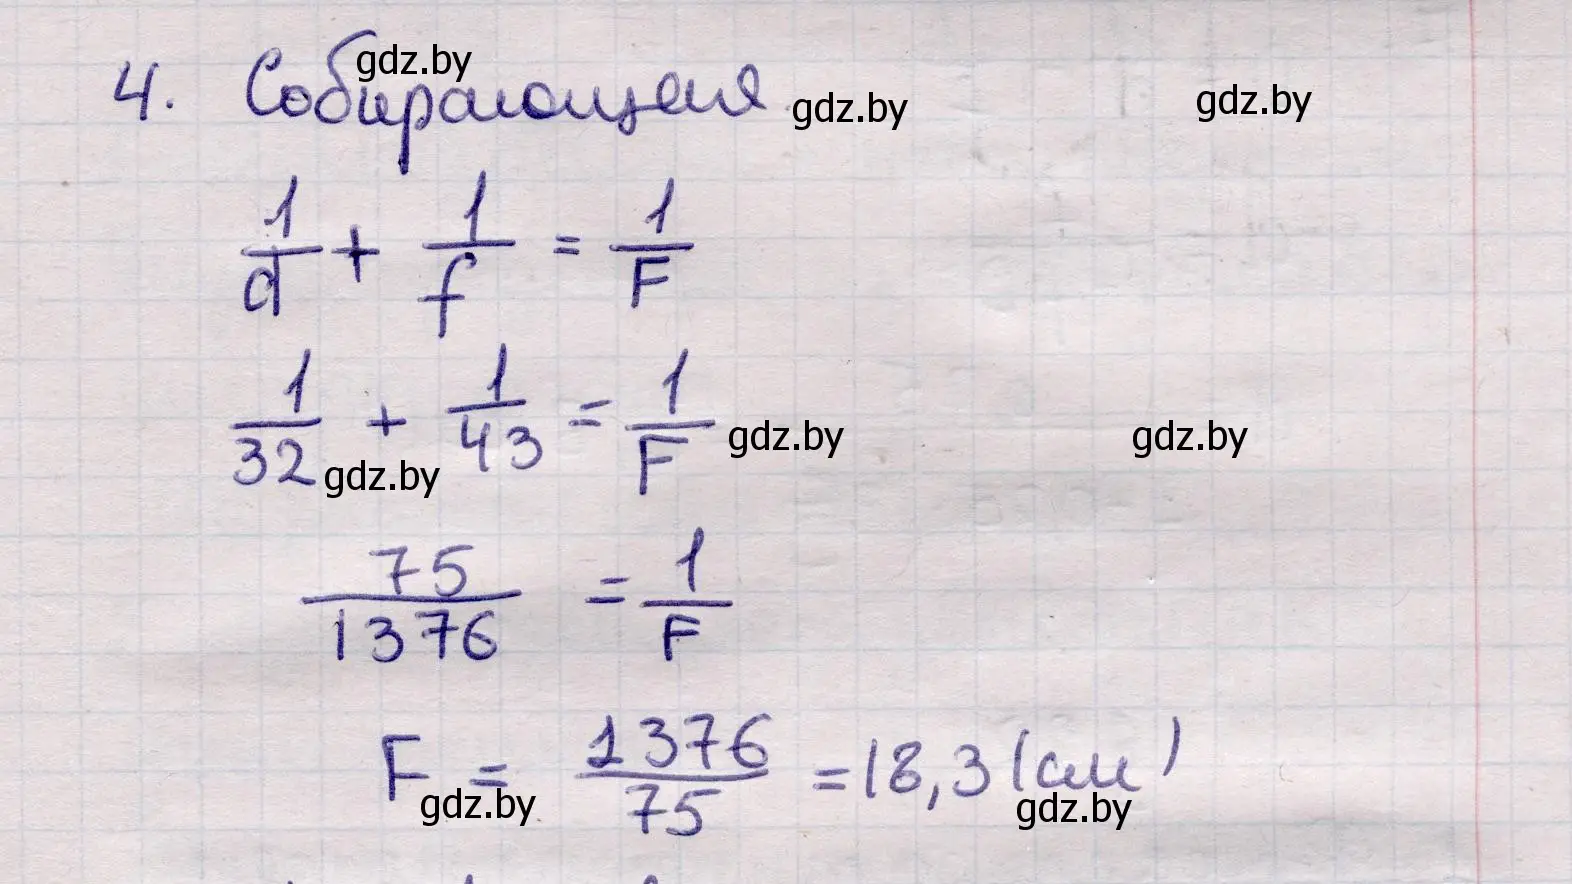 4. Собирающая
gdz.by
gdz.by
gdz.by
1/d + 1/f = 1/F
1/32 + 1/43 = 1/F
gdz.by
gdz.by
gdz.by
75/1376 = 1/F
F = 1376/75 = 18,3 (см)
gdz.by
gdz.by